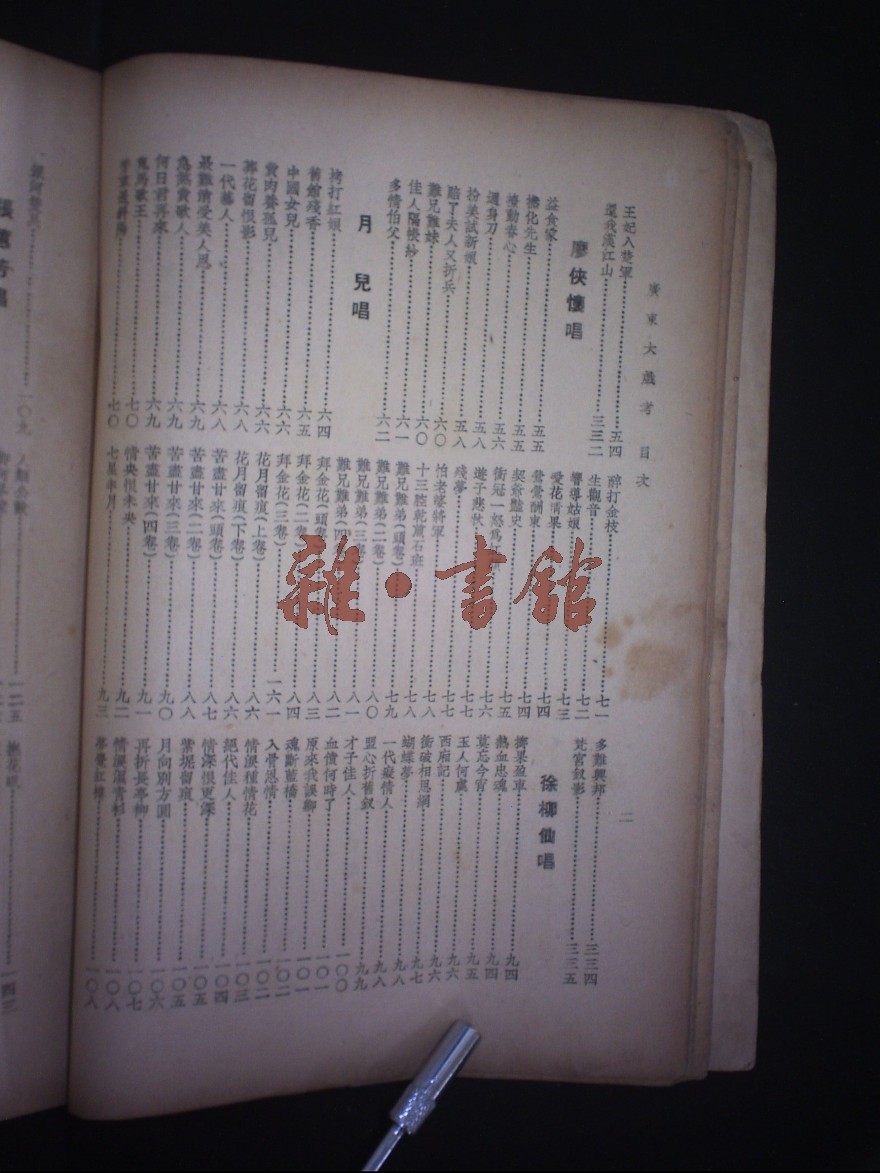 廣東大戲考目次
二
王妃入楚軍……五四
還我漢江山……三三二
廖俠懷唱
益食家……五五
擔化先生……五五
撩動春心……五六
通身刀……五八
扮美試新娘……五八
賠了夫人又折兵……六〇
難兄難妹……六〇
佳人隔幔紗……六一
多情伯父……六二
月兒唱
拷打紅娘……六四
舊館殘香……六五
中國女兒……六六
賣肉養孤兒……六六
葬花留恨影……六八
一代藝人……六八
最難消受美人恩……六九
急煞賣歌人……六九
何日君再來……六九
鬼馬歌王……七〇
七〇
醉打金枝……七一
生觀音……七二
嚮導姑娘……七三
愛花惜果……七四
鶯鶯酬柬……七四
契爺豔史……七五
衝冠一怒為
遊子悲秋……七六
殘夢……七七
怕老婆將軍……七八
十三陸乾蘆石班……七八
難兄難弟(頭卷)……七九
難兄難弟(二卷)……八〇
難兄難弟(三卷)……八一
難兄難弟(四……八二
拜金花(頭卷)……八三
拜金花(二卷)……八四
拜金花(三卷)……一六一
花月留痕(上卷)……八六
花月留痕(下卷)……八六
苦盡甘來(頭卷)……八七
苦盡甘來(二卷)……八八
苦盡甘來(三卷)……九〇
苦盡甘來(四卷)……九一
情央恨未央……九二
七星伴月……九三
多難興邦……三三四
梵宮釵影……三三五
徐柳仙唱
擲果盈車……九四
熱血忠魂……九四
莫忘今宵……九五
玉人何處……九六
西廂記……九六
衝破相思網……九七
蝴蝶夢……九八
一代癡情人……九八
盟心折舊釵……九九
才子佳人……一〇〇
血債何時了……一〇一
原來我誤卿……一〇一
魂斷藍橋……一〇二
入骨恩情……一〇二
情淚種情花……一〇三
絕代佳人……一〇四
情深恨更深……一〇五
紫塢留痕……一〇五
月向別方圓……一〇六
再折長亭柳……一〇七
情淚濕青衫……一〇八
夢覺紅樓……一〇八
張蕙芳唱
一〇九
一二五
一四三
雜·書館